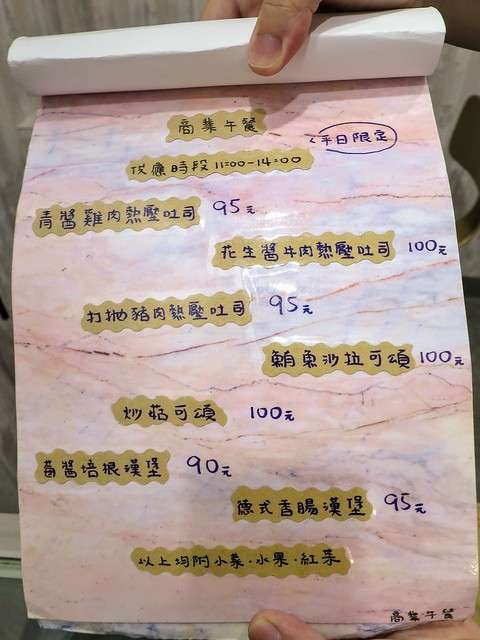 商業午餐
平日限定
供應時段11:00-14:00
青醬雞肉熱壓吐司 95元
花生醬牛肉熱壓吐司 100元
打拋豬肉熱壓吐司 95元
鮪魚沙拉可頌 100元
炒菇可頌 100元
莓醬培根漢堡 90元
德式香腸漢堡 95元
以上均附小菜·水果·紅茶
商業午餐